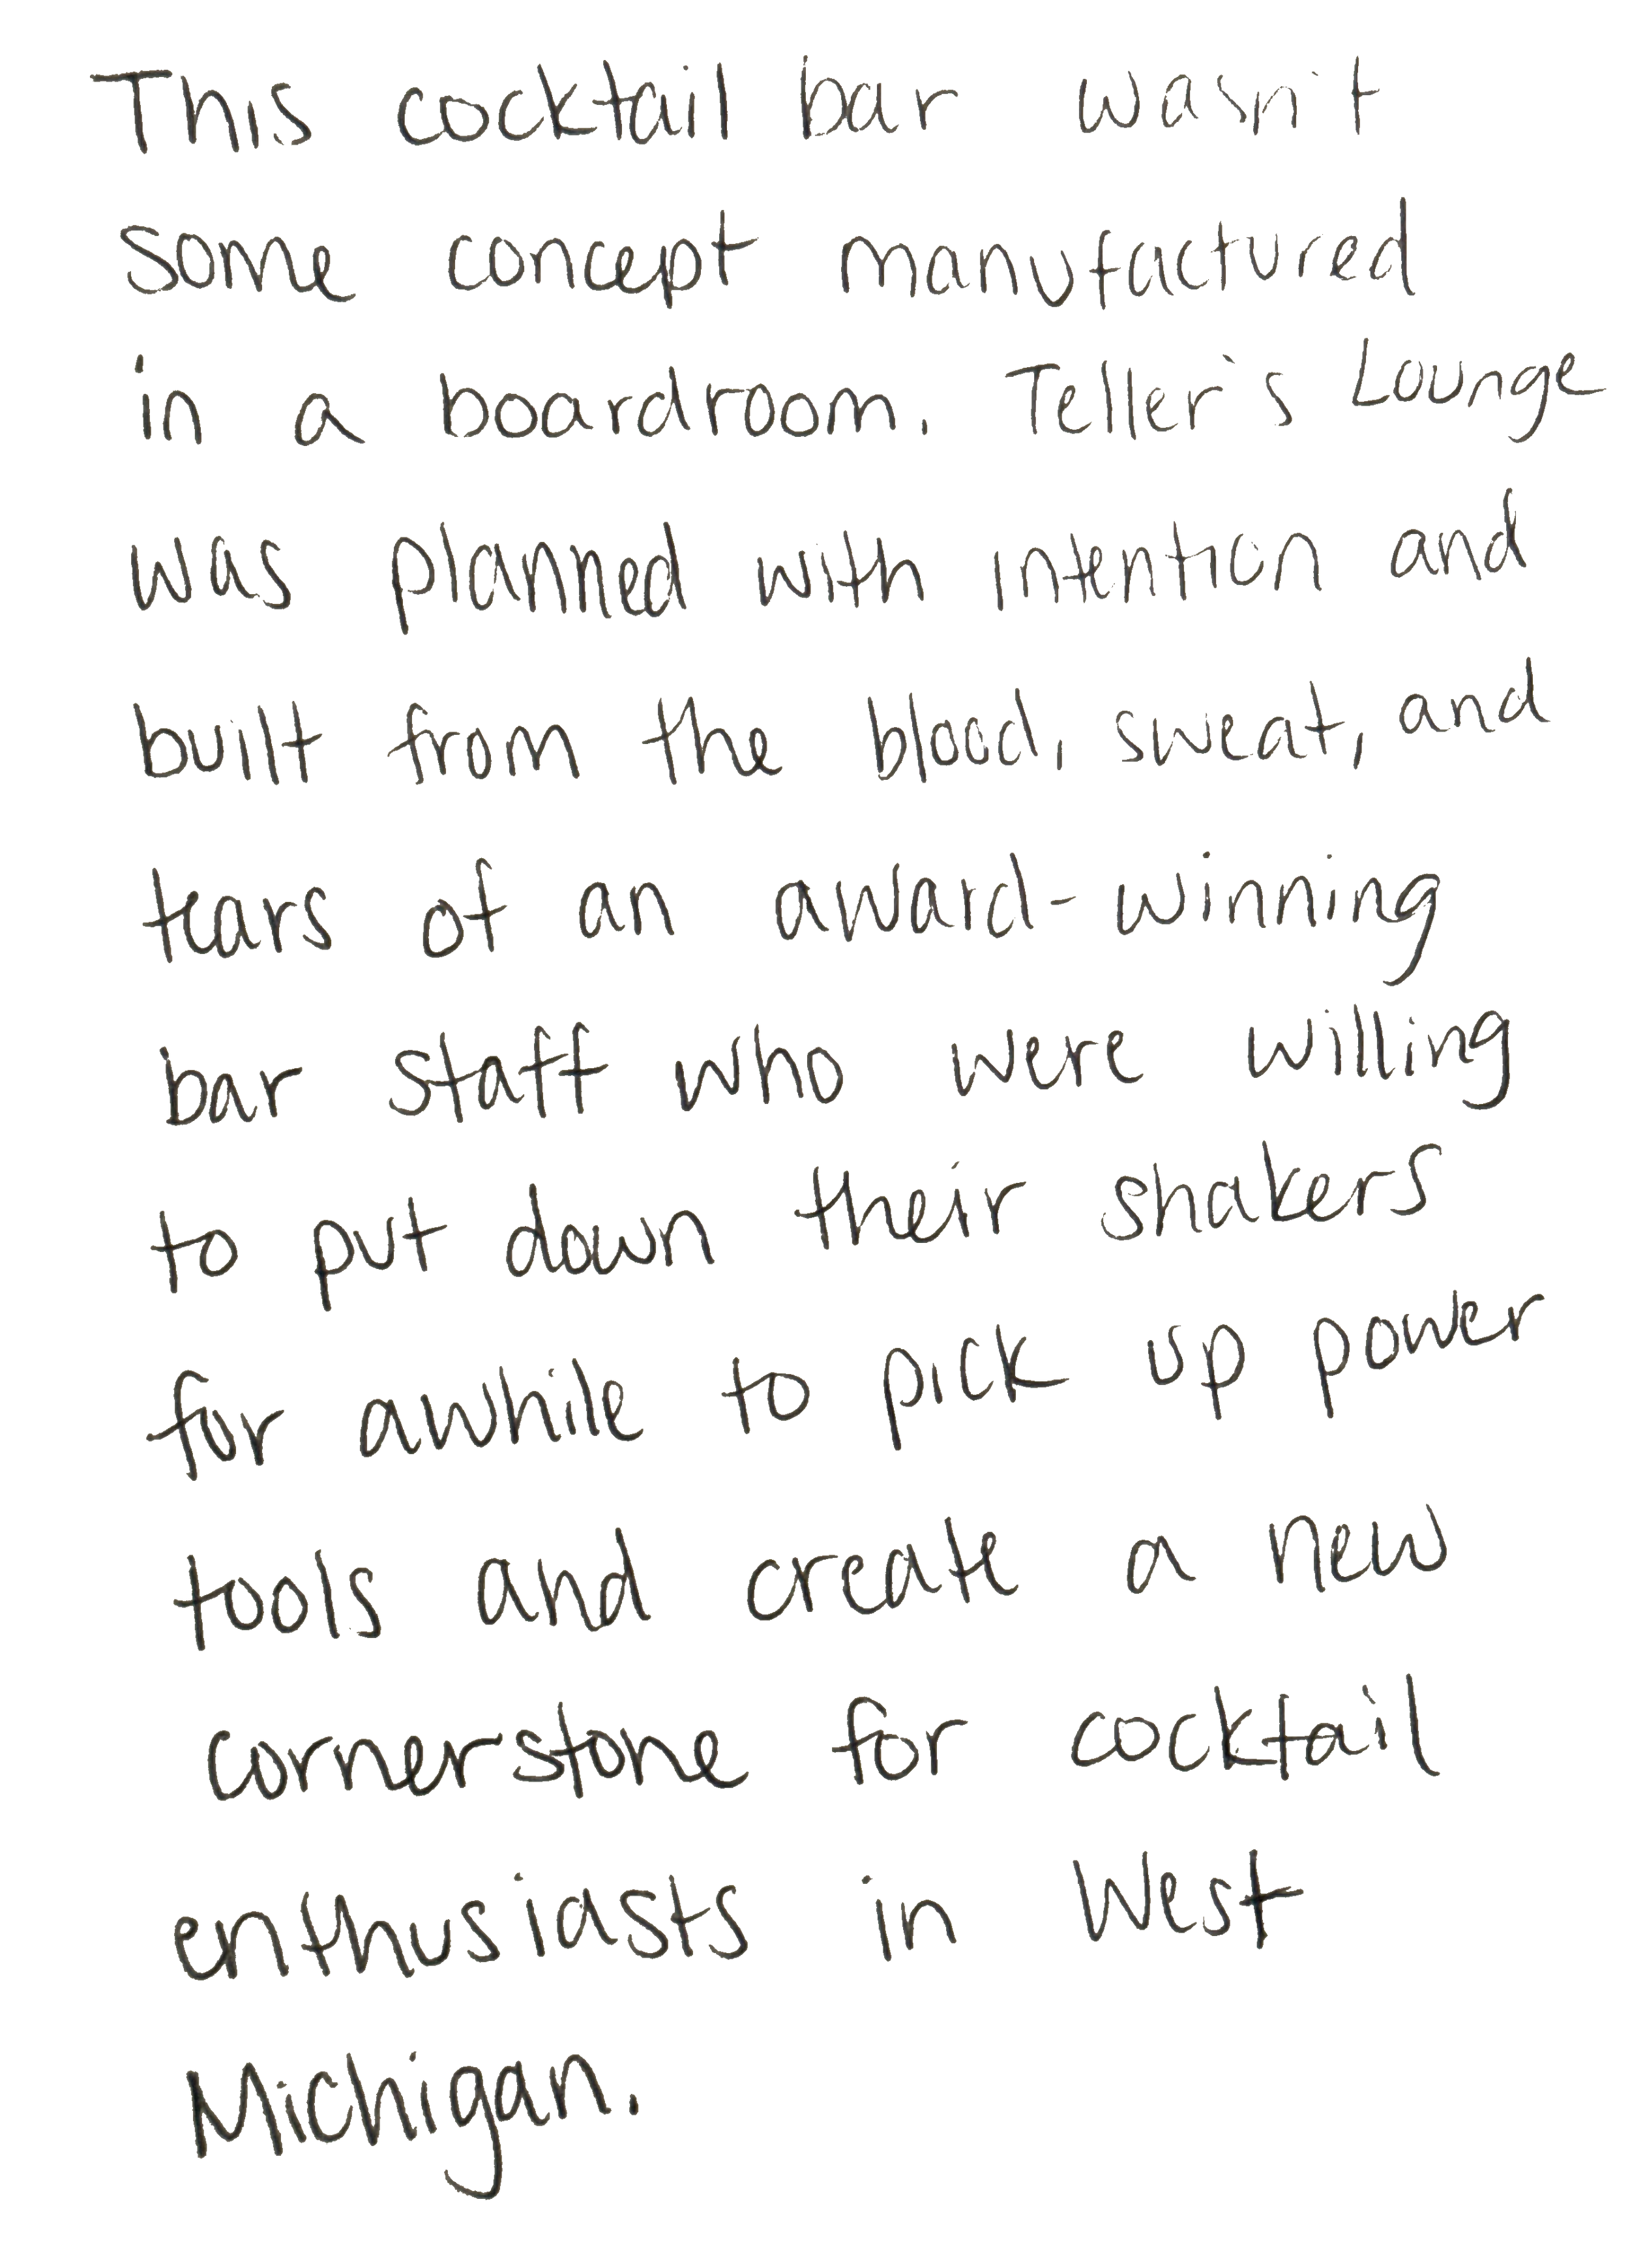 This cocktail bar wasn't
some concept manufactured
in a boardroom. Teller's Lounge
was planned with intention and
built from the blood, sweat, and
tears of an award-winning
bar staff who were willing
to put down their shakers
for awhile to pick up power
tools and create a new
cornerstone for cocktail
enthusiasts in West
Michigan.